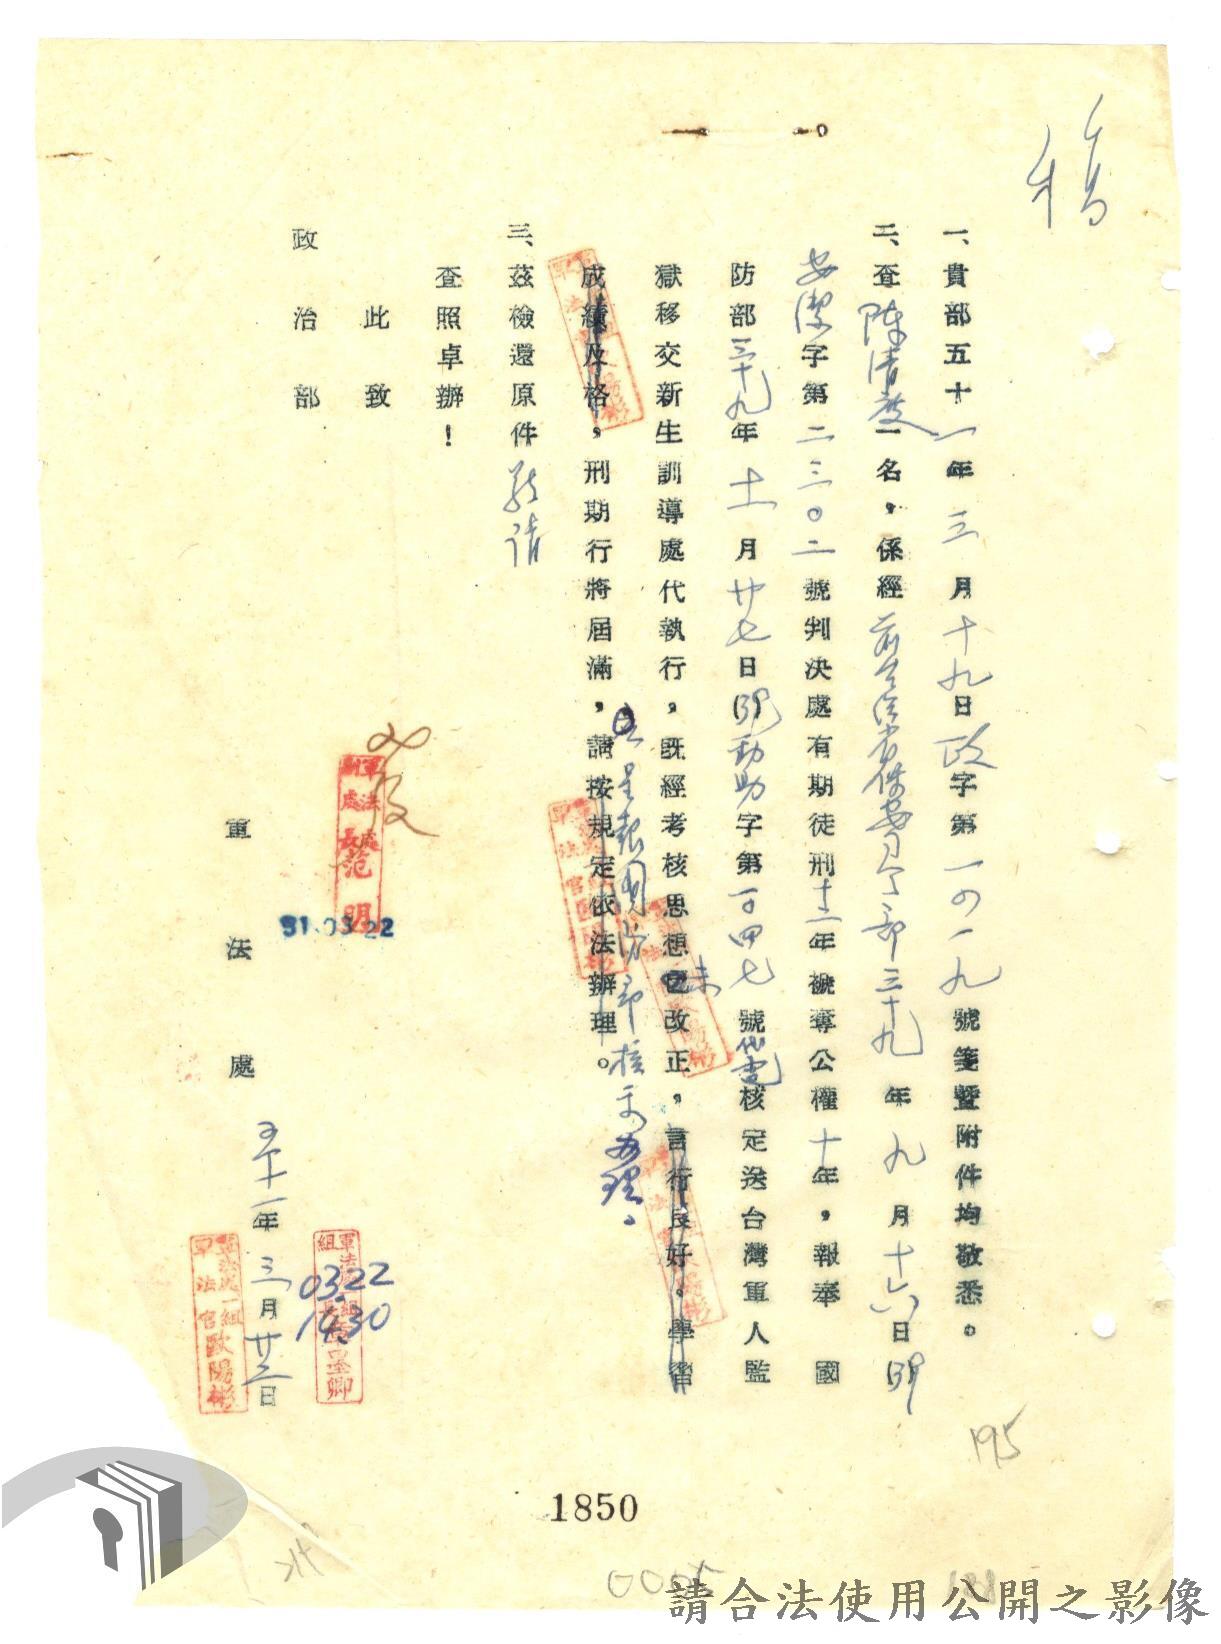 稿
一、貴部五十一年三月十九日政字第一〇一九號箋暨附件均敬悉。
二、查陳清度一名，係經前台湾省保安司令部三十九年九月十六日
安潔字第二三〇二號判決處有期徒刑十二年褫奪公權十年，報奉國
防部三十九年十一月廿七日勁助字第一〇四七號代電核定送台灣軍人監
獄移交新生訓導處代執行，既經考核思想未改正，言行良好。學習
成績及格，刑期行將屆滿，請按規定依法辦理。
呈報國防部核示辦理。
三、茲檢還原件敬請
查照卓辦！
此致
政治部
軍法處
五十一年三月廿二日
軍法處副處長范明
51.03.22
0322
1430
軍法處一組軍法官歐陽彬
195
1850
0005
請合法使用公開之影像